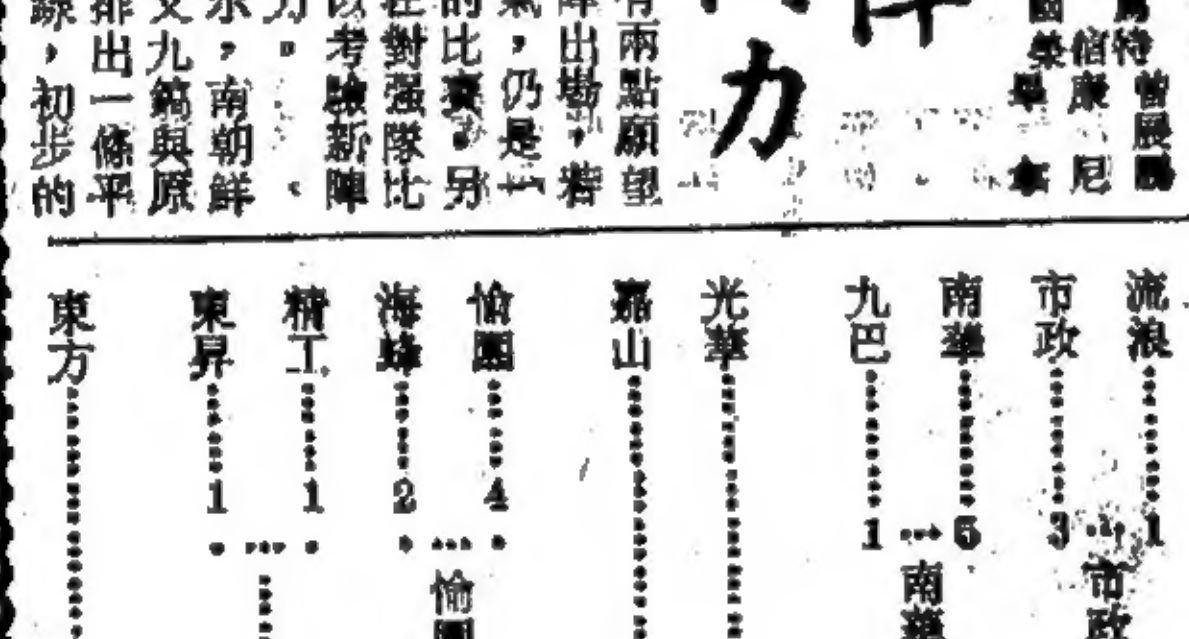 力
有兩點願望
陣出場，若
氣，仍是一
的比賽。另
在對强隊比
以考驗新陣
力。
示，南朝鮮
文九鎬與原
排出一條平
線，初步的
流浪 1
市政 3
市政
南華 5
九巴 1
南華
光華
嘉山
愉園 4
海蜂 2
愉園
精工 1
東昇 1
東方